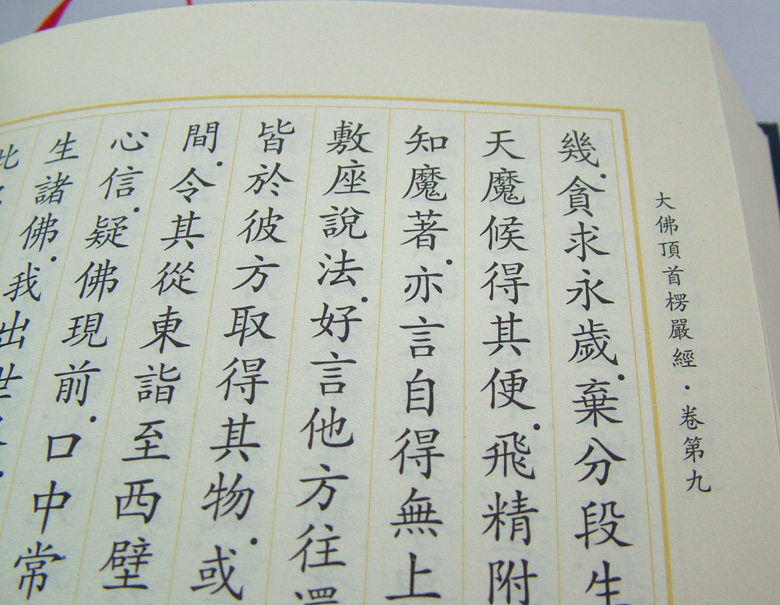 大佛頂首楞嚴經・卷第九
幾.貪求永歲.棄分段生
天魔候得其便.飛精附
知魔著.亦言自得無上
敷座說法.好言他方往還
皆於彼方取得其物.或
間.令其從東詣至西壁
心信.疑佛現前.口中常
生諸佛.我出世